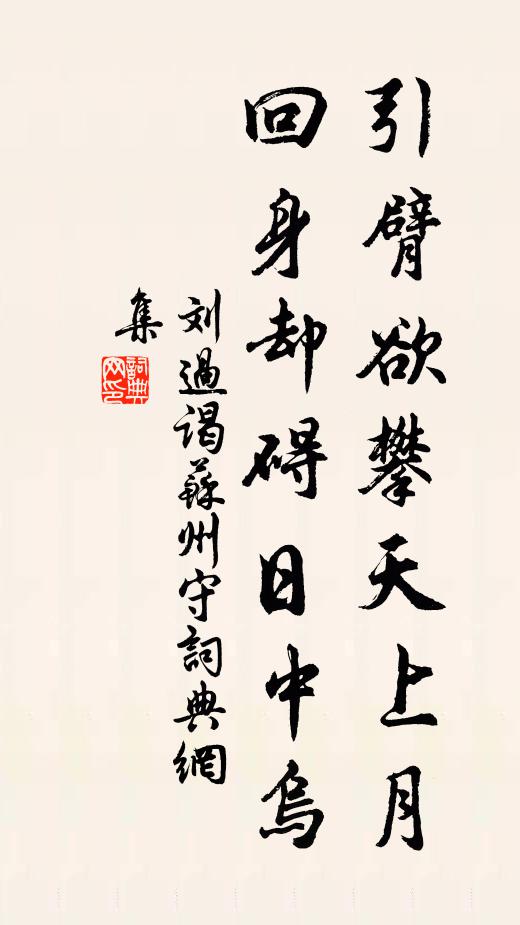 引臂欲攀天上月
回身却碍日中烏
刘過谒蘇州守詞典網
集
詞典網印